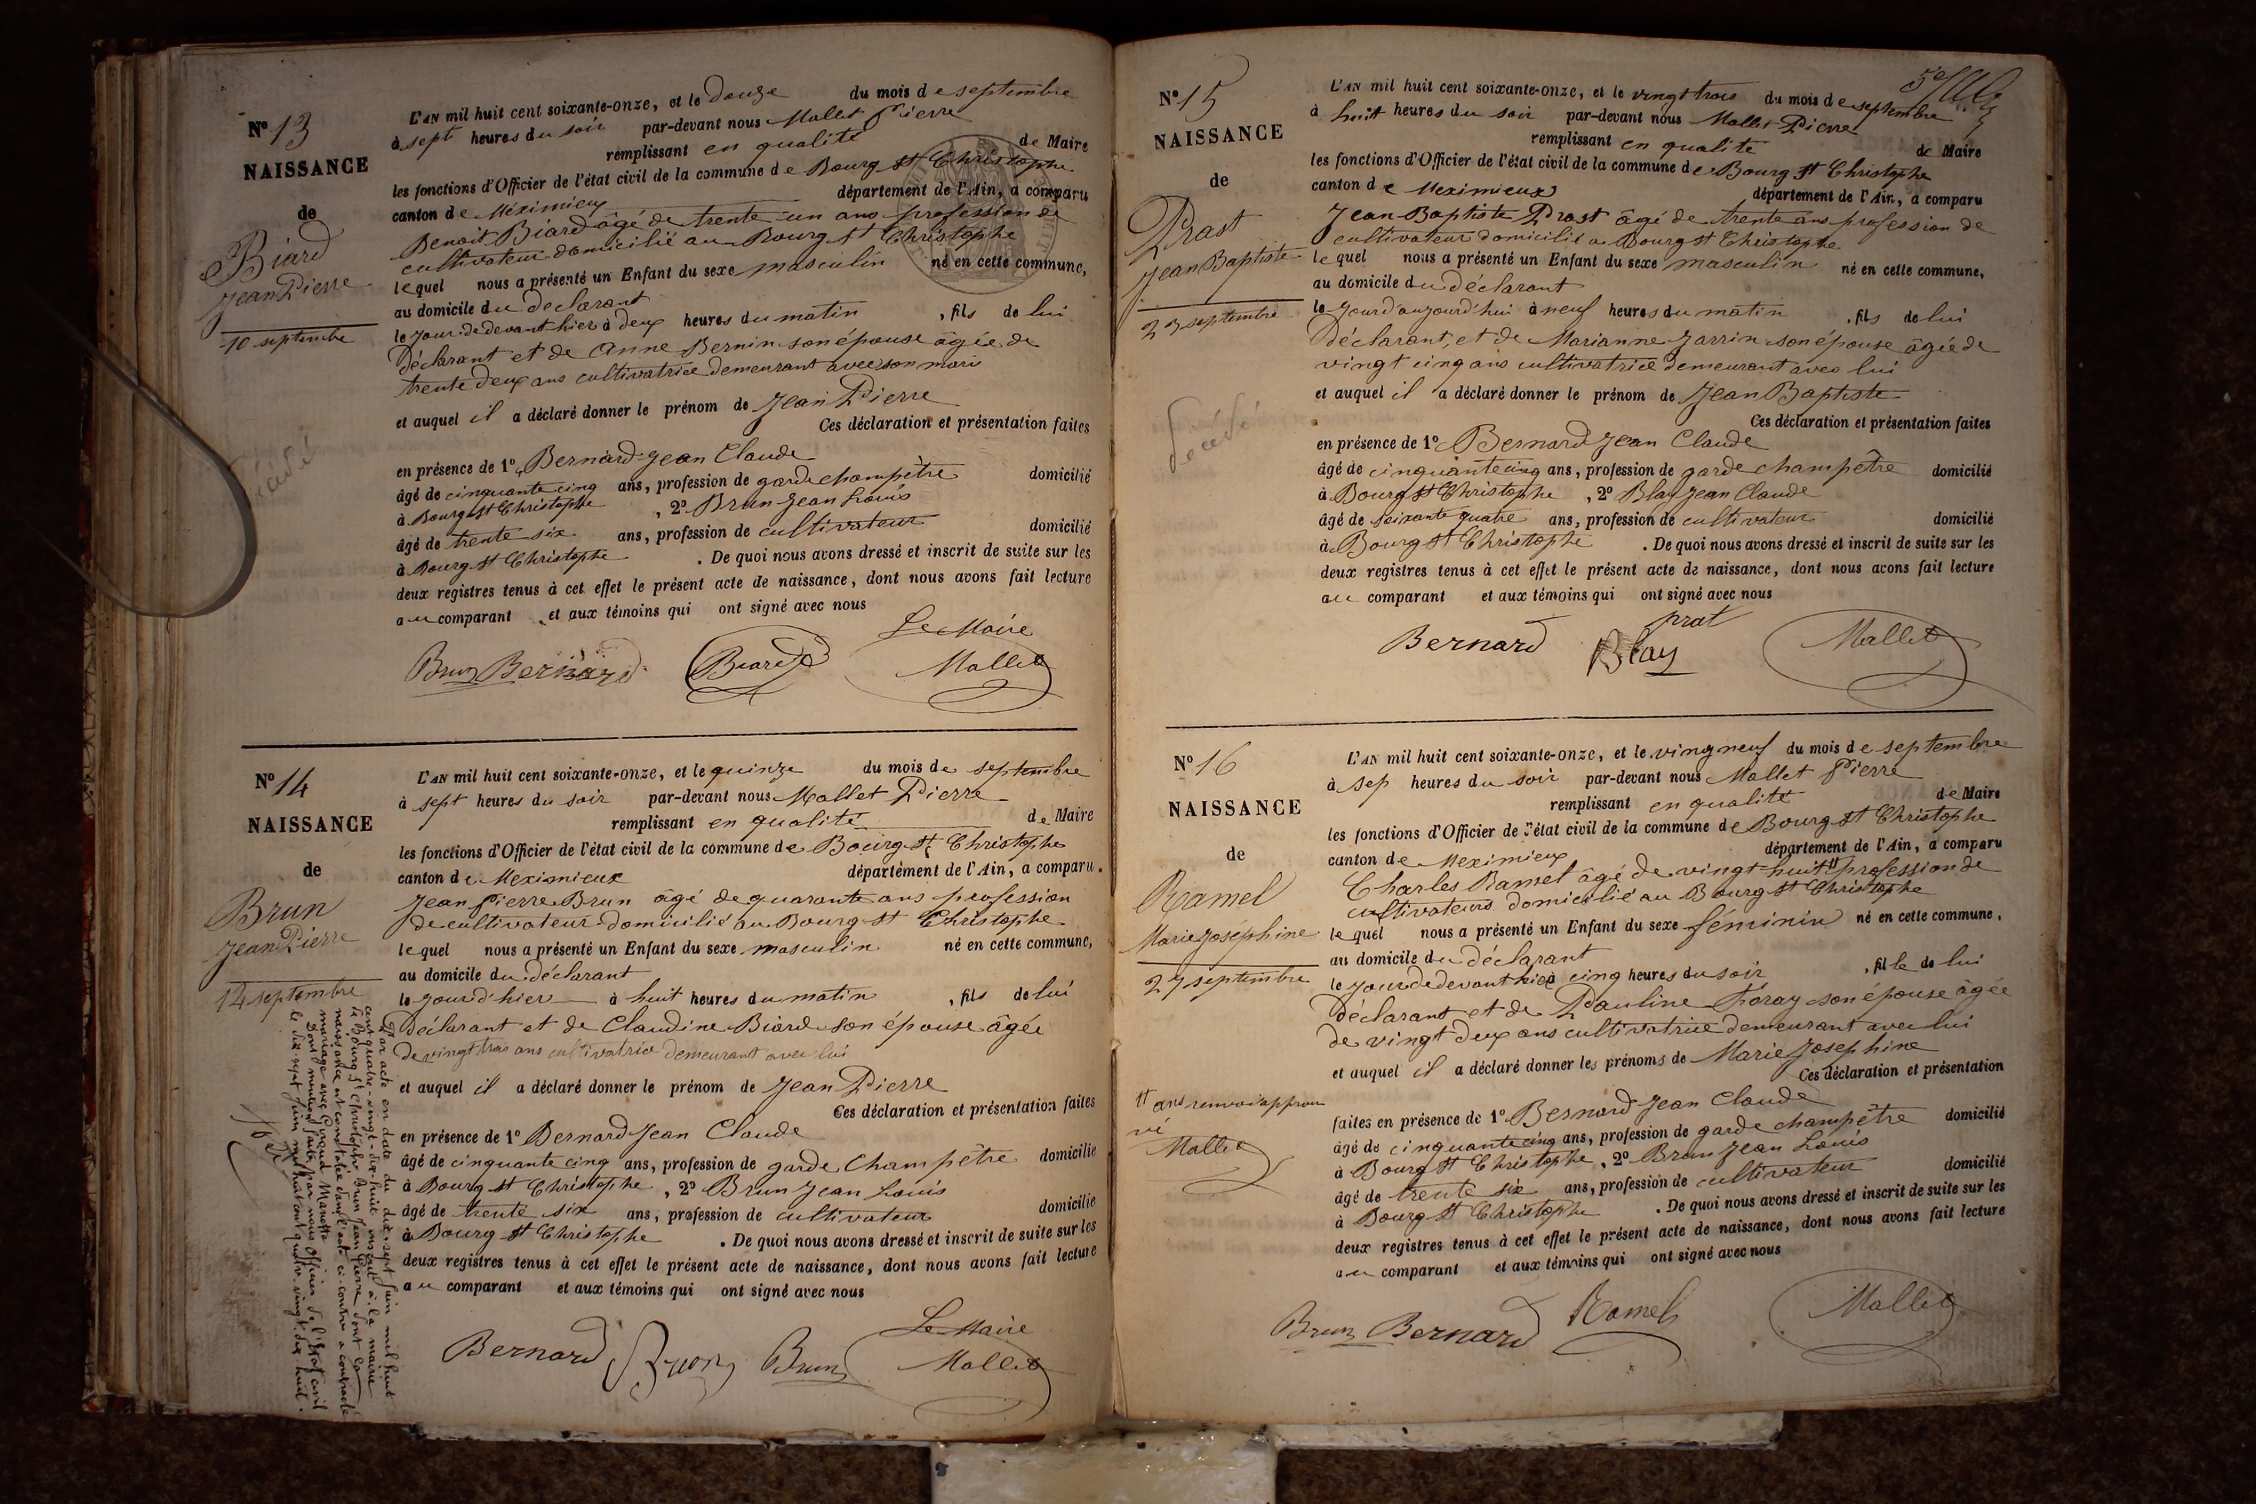 N° 13
NAISSANCE
de
Biard
Jean Pierre
10 septembre
décédé
L'AN mil huit cent soixante-onze, et le douze du mois de septembre
à sept heures du soir par-devant nous Mallet Pierre
remplissant en qualité de Maire
les fonctions d'Officier de l'état civil de la commune de Bourg St Christophe
canton de Méximieux département de l'Ain, a comparu
Benoit Biard âgé de trente-un ans profession de
cultivateur domicilié au Bourg St Christophe
lequel nous a présenté un Enfant du sexe masculin né en cette commune,
au domicile du déclarant
le jour de devant hier à deux heures du matin, fils de lui
déclarant et de Anne Bernin son épouse âgée de
trente deux ans cultivatrice demeurant avec son mari
et auquel il a déclaré donner le prénom de Jean Pierre
Ces déclaration et présentation faites
en présence de 1° Bernard Jean Claude
âgé de cinquante cinq ans, profession de garde champêtre domicilié
à Bourg St Christophe, 2° Brun Jean Louis
âgé de trente six ans, profession de cultivateur domicilié
à Bourg St Christophe. De quoi nous avons dressé et inscrit de suite sur les
deux registres tenus à cet effet le présent acte de naissance, dont nous avons fait lecture
au comparant et aux témoins qui ont signé avec nous
Le Maire
Brun Bernard Biard Mallet
N° 14
NAISSANCE
de
Brun
Jean Pierre
14 septembre
L'AN mil huit cent soixante-onze, et le quinze du mois de septembre
à sept heures du soir par-devant nous Mallet Pierre
remplissant en qualité de Maire
les fonctions d'Officier de l'état civil de la commune de Bourg St Christophe
canton de Meximieux département de l'Ain, a comparu
Jean Pierre Brun âgé de quarante ans profession
de cultivateur domicilié au Bourg St Christophe
lequel nous a présenté un Enfant du sexe masculin né en cette commune,
au domicile du déclarant
le jour d'hier à huit heures du matin, fils de lui
déclarant et de Claudine Biard son épouse âgée
de vingt trois ans cultivatrice demeurant avec lui
et auquel il a déclaré donner le prénom de Jean Pierre
Ces déclaration et présentation faites
en présence de 1° Bernard Jean Claude
âgé de cinquante cinq ans, profession de garde champêtre domicilié
à Bourg St Christophe, 2° Brun Jean Louis
âgé de trente six ans, profession de cultivateur domicilié
à Bourg St Christophe. De quoi nous avons dressé et inscrit de suite sur les
deux registres tenus à cet effet le présent acte de naissance, dont nous avons fait lecture
au comparant et aux témoins qui ont signé avec nous
Le Maire
Bernard Brun Brun Mallet
Par acte en date du dix-sept juin mil huit
cent quatre-vingt-dix-huit inscrit à la mairie
de Bourg St Christophe Brun Jean Pierre dont la
naissance est constatée dans l'acte ci-contre a contracté
mariage avec Giraud Mariette
Dont mention faite par nous officier de l'état civil
le dix-sept juin mil huit cent quatre-vingt-dix-huit.
N° 15
NAISSANCE
de
Prost
Jean Baptiste
23 septembre
décédé
L'AN mil huit cent soixante-onze, et le vingt trois du mois de septembre
à huit heures du soir par-devant nous Mallet Pierre
remplissant en qualité de Maire
les fonctions d'Officier de l'état civil de la commune de Bourg St Christophe
canton de Meximieux département de l'Ain, a comparu
Jean-Baptiste Prost âgé de trente ans profession de
cultivateur domicilié a Bourg st Christophe
lequel nous a présenté un Enfant du sexe masculin né en cette commune,
au domicile du déclarant
le jour d'aujourd'hui à neuf heures du matin, fils de lui
déclarant, et de Marianne Jarrin son épouse âgée de
vingt cinq ans cultivatrice demeurant avec lui
et auquel il a déclaré donner le prénom de Jean Baptiste
Ces déclaration et présentation faites
en présence de 1° Bernard Jean Claude
âgé de cinquante cinq ans, profession de garde champêtre domicilié
à Bourg St Christophe, 2° Blay Jean Claude
âgé de soixante quatre ans, profession de cultivateur domicilié
à Bourg St Christophe. De quoi nous avons dressé et inscrit de suite sur les
deux registres tenus à cet effet le présent acte de naissance, dont nous avons fait lecture
au comparant et aux témoins qui ont signé avec nous
prat
Bernard Blay Mallet
N° 16
NAISSANCE
de
Ramel
Marie Joséphine
27 septembre
tt ans renvoi approu
vé
Mallet
L'AN mil huit cent soixante-onze, et le vingneuf du mois de septembre
à sep heures du soir par-devant nous Mallet Pierre
remplissant en qualité de Maire
les fonctions d'Officier de l'état civil de la commune de Bourg St Christophe
canton de Meximieux département de l'Ain, a comparu
Charles Ramel âgé de vingt-huit tt profession de
cultivateurs domicilié au Bourg St Christophe
lequel nous a présenté un Enfant du sexe féminin né en cette commune,
au domicile du déclarant
le jour de devant hier à cinq heures du soir, fille de lui
déclarant et de Pauline Foray son épouse âgée
de vingt deux ans cultivatrice demeurant avec lui
et auquel il a déclaré donner les prénoms de Marie Josephine
Ces déclaration et présentation
faites en présence de 1° Bernard Jean Claude
âgé de cinquante cinq ans, profession de garde champêtre domicilié
à Bourg St Christophe, 2° Brun Jean Louis
âgé de trente six ans, profession de cultivateur domicilié
à Bourg St Christophe. De quoi nous avons dressé et inscrit de suite sur les
deux registres tenus à cet effet le présent acte de naissance, dont nous avons fait lecture
au comparant et aux témoins qui ont signé avec nous
Brun Bernard Ramel Mallet